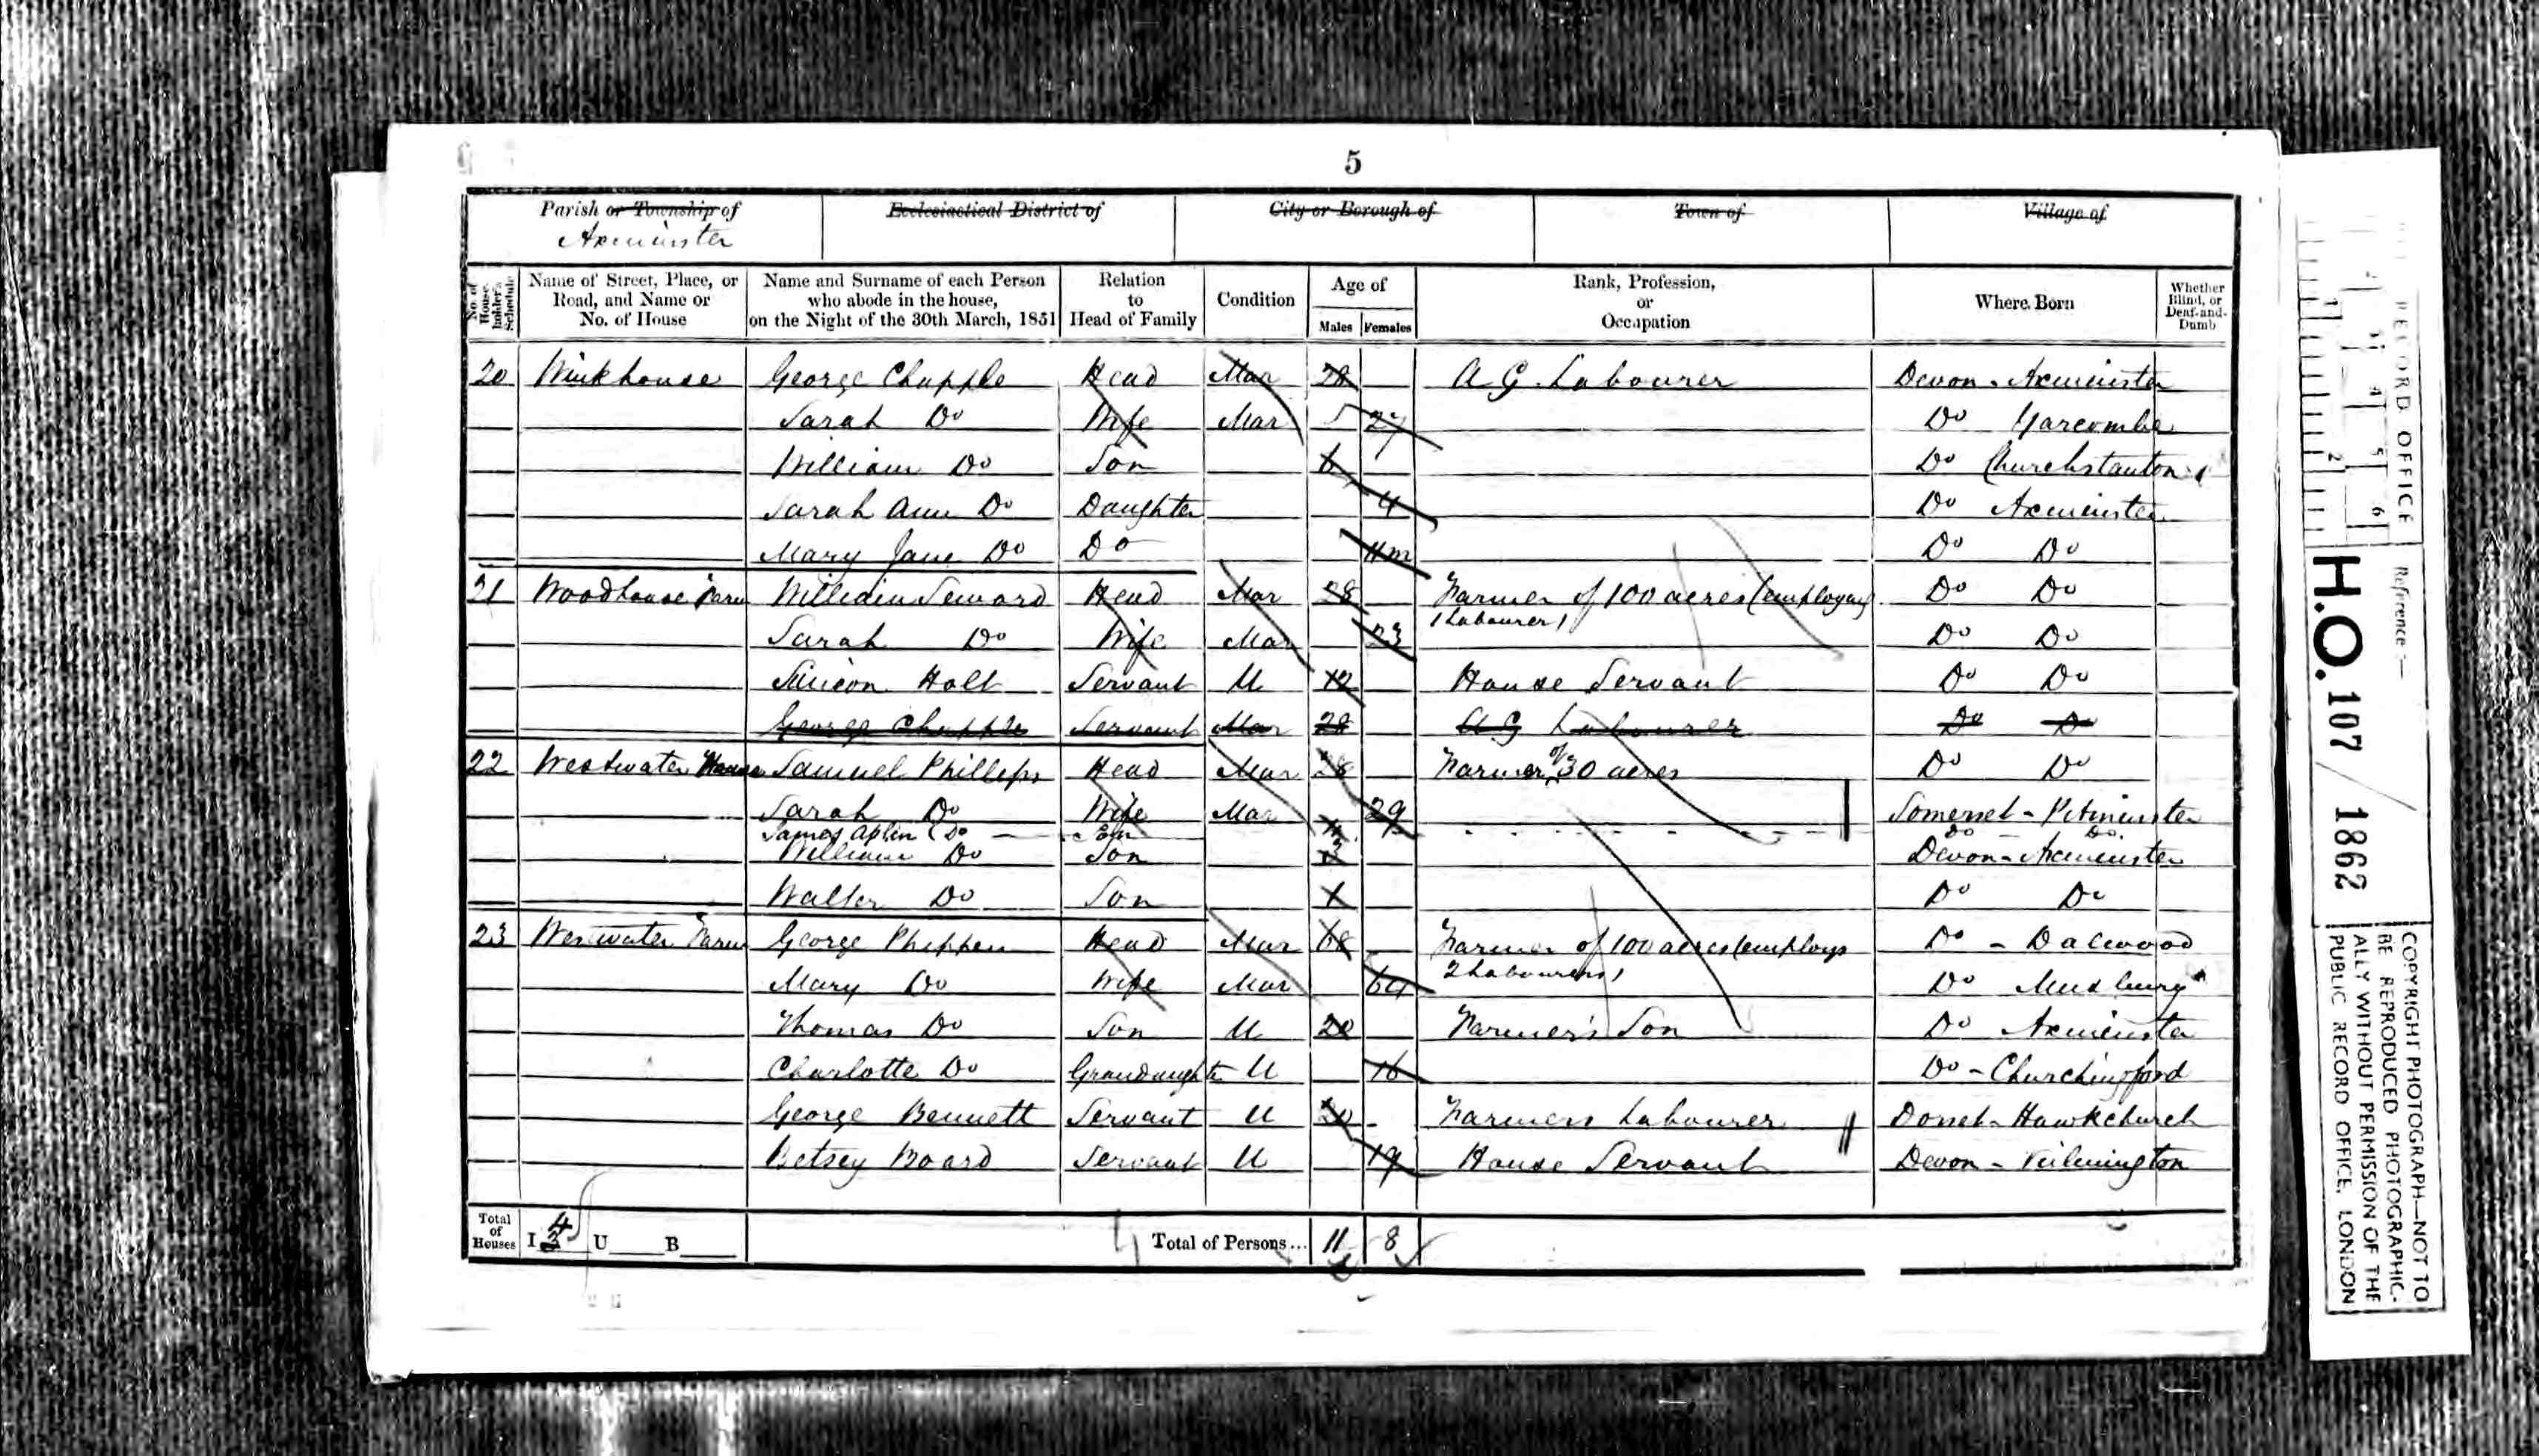 5
Parish or Township of Ecclesiastical District of City or Borough of Town of Village of
Axminster
No. of House-holder's Schedule Name of Street, Place, or Road, and Name or No. of House Name and Surname of each Person who abode in the house, on the Night of the 30th March, 1851 Relation to Head of Family Condition Age of Males Females Rank, Profession, or Occupation Where Born Whether Blind, or Deaf-and-Dumb
20 Winkhouse George Chapple Head Mar 28 A G Labourer Devon - Axminster
Sarah Do Wife Mar 27 Do Yarcombe
William Do Son 6 Do Churchstanton
Sarah Ann Do Daughter 4 Do Axminster
Mary Jane Do Do 11m Do Do
21 Woodhouse Farm William Seward Head Mar 28 Farmer of 100 acres (employing Do Do
1 Labourer)
Sarah Do Wife Mar 23 Do Do
Simeon Holt Servant U 12 House Servant Do Do
George Chapple Servant Mar 28 A G Labourer Do Do
22 Westwater House Samuel Phillips Head Mar 28 Farmer of 30 acres Do Do
Sarah Do Wife Mar 29 Somerset - Pitminster
James Aplin Do Son Do Do
William Do Son 3 Devon - Axminster
Walter Do Son 1 Do Do
23 Westwater Farm George Phippen Head Mar 68 Farmer of 100 acres (employs Do - Dalwood
2 Labourers)
Mary Do Wife Mar 64 Do Musbury
Thomas Do Son U 20 Farmer's Son Do Axminster
Charlotte Do Grandaughter U 16 Do - Churchingford
George Bennett Servant U 20 Farmers Labourer Dorset - Hawkchurch
Betsey Board Servant U 19 House Servant Devon - Wilmington
Total of Houses I 4 3 U B Total of Persons... 11 8
RECORD OFFICE
Reference :-
H.O. 107 / 1862
COPYRIGHT PHOTOGRAPH—NOT TO
BE REPRODUCED PHOTOGRAPHIC-
ALLY WITHOUT PERMISSION OF THE
PUBLIC RECORD OFFICE, LONDON
1 2
4 5 6